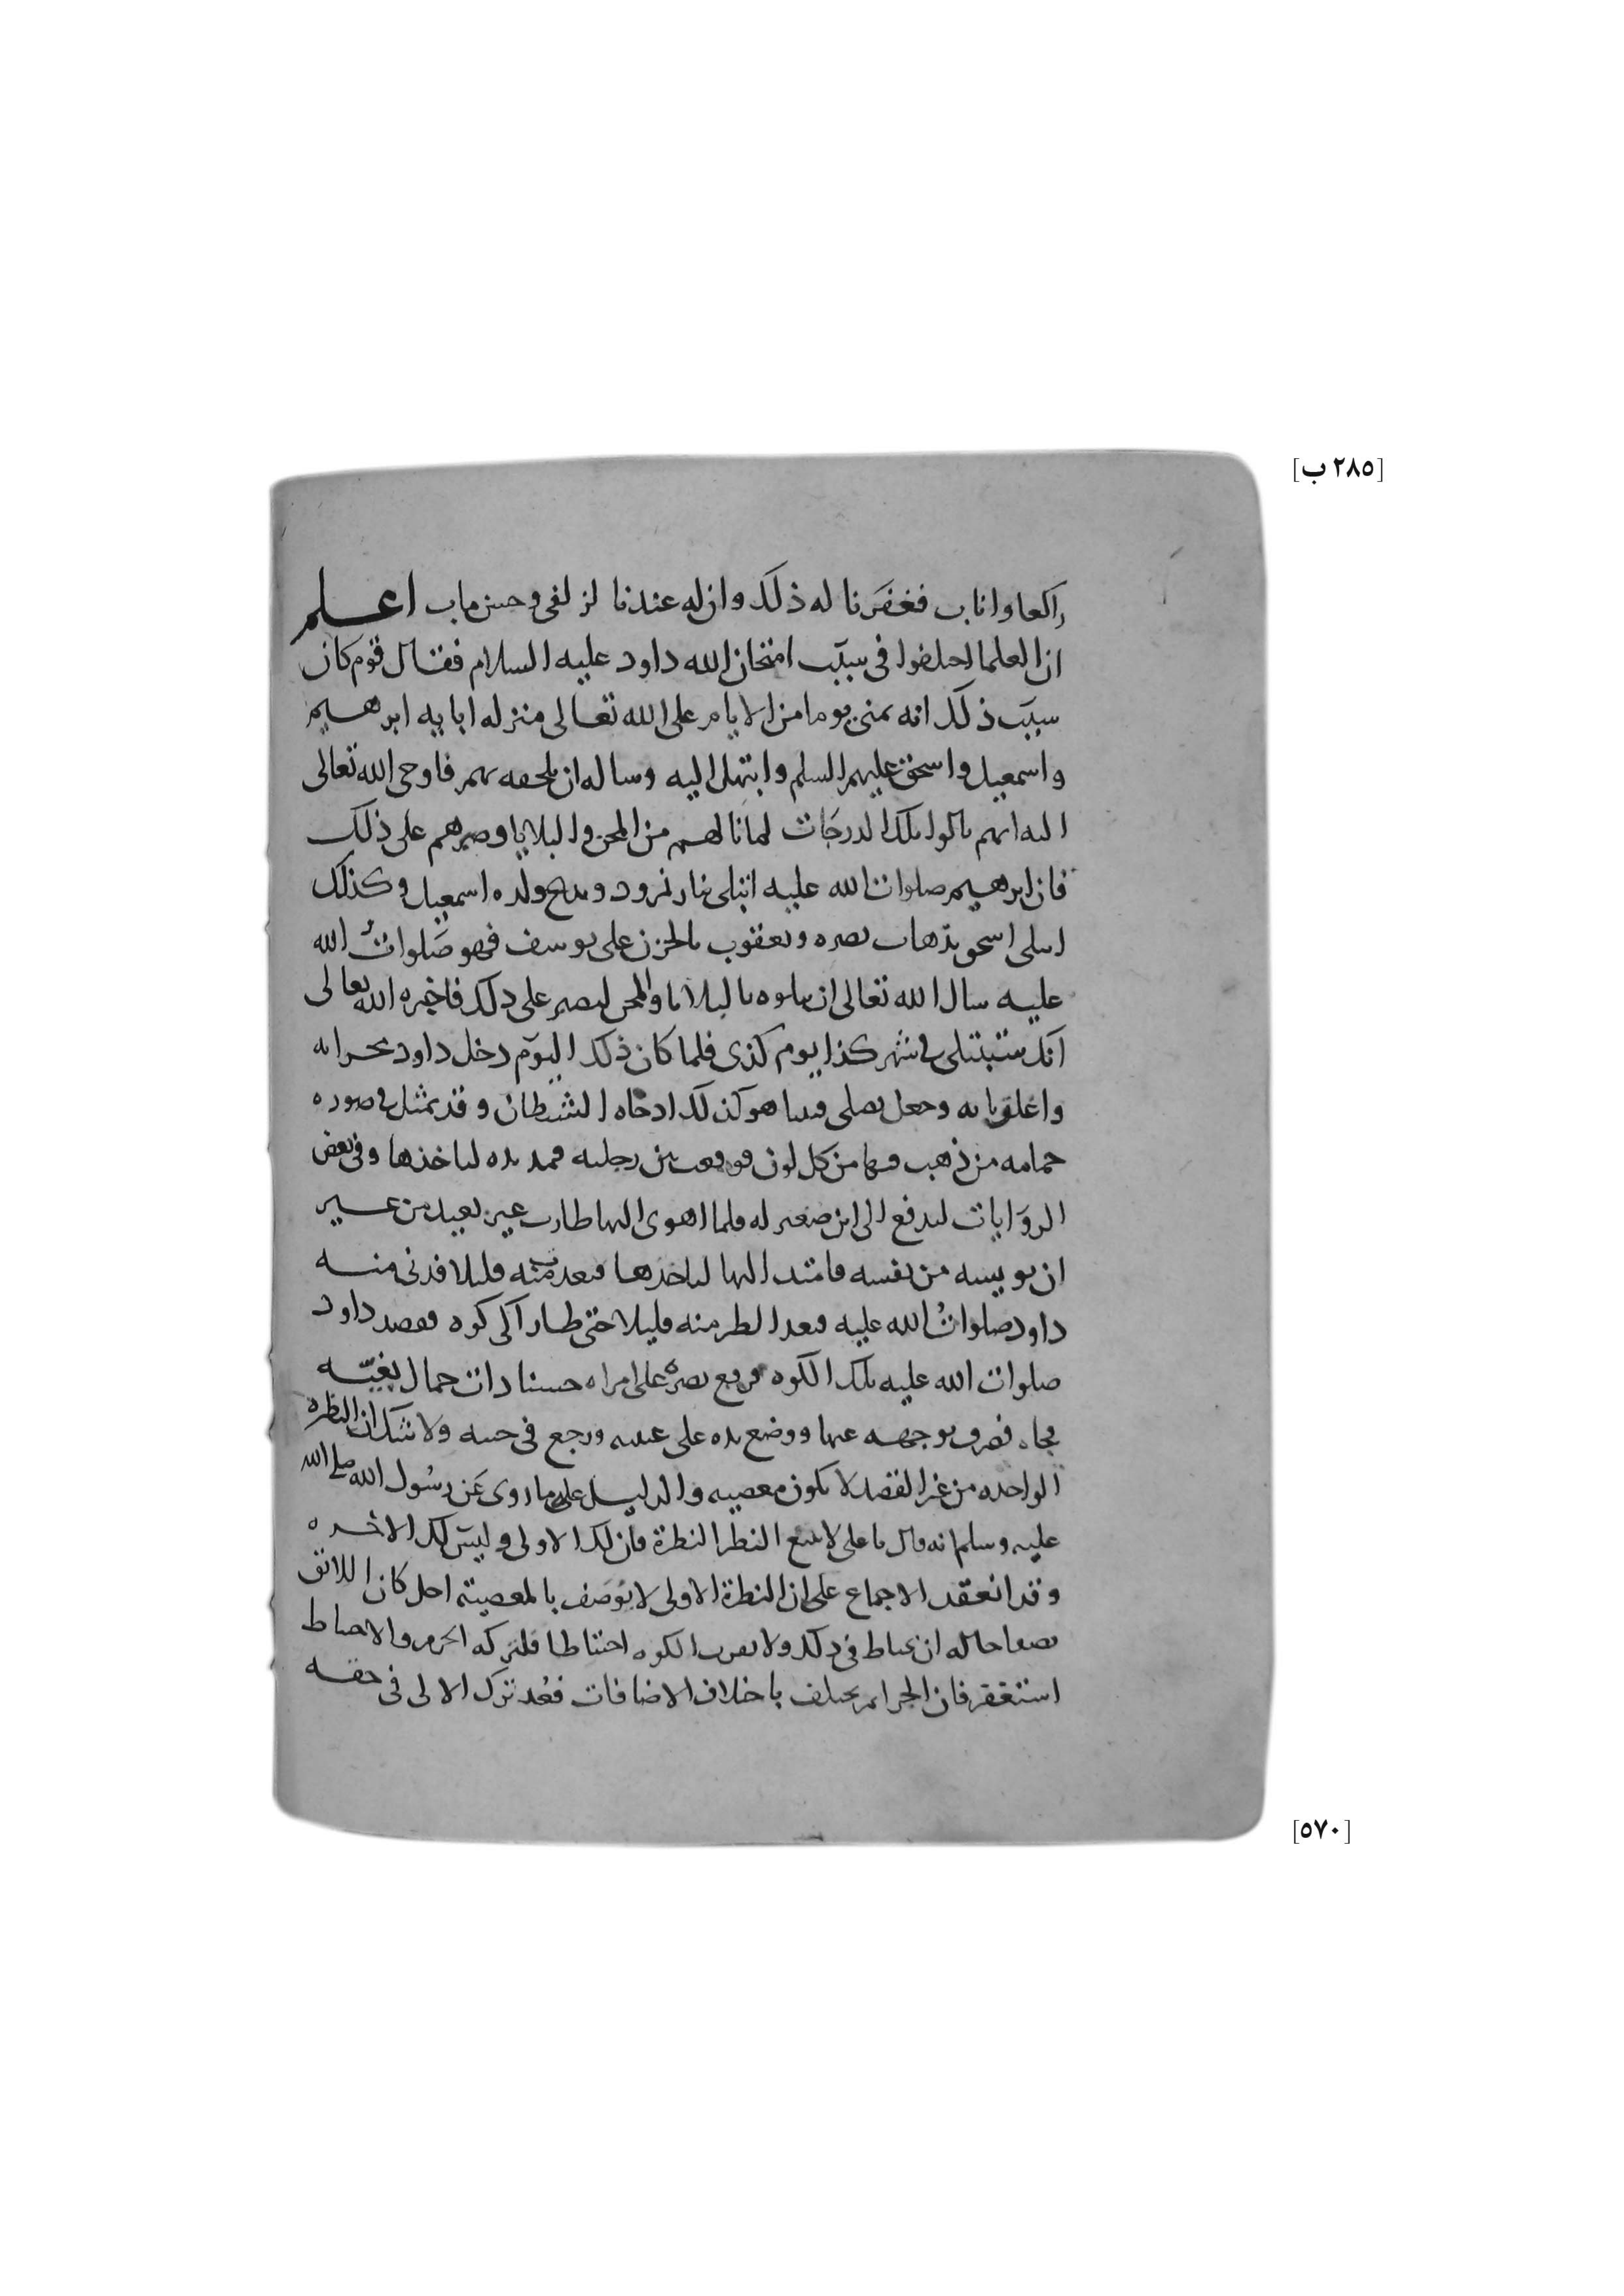 [٢٨٥ ب]
راكعا واناب فغفرنا له ذلك وان له عندنا لزلفى وحسن ماب اعلم
ان العلما اختلفوا فى سبب امتحان الله داود عليه السلام فقال قوم كان
سبب ذلك انه تمنى يوما من الايام على الله تعالى منزله ابايه ابرهيم
واسمعيل واسحق عليهم السلم وابتهل اليه وساله ان يلحقه بهم فاوحى الله تعالى
اليه انهم نالوا تلك الدرجات لما نالهم من المحن والبلايا وصبرهم على ذلك
فان ابرهيم صلوات الله عليه ابتلى بنار نمرود وبذبح ولده اسمعيل وكذلك
ابتلى اسحق بذهاب بصره ويعقوب بالحزن على يوسف فهو صلوات الله
عليه سال الله تعالى ان يبلوه بالبلايا والمحن ليصبر على ذلك فاخبره الله تعالى
انك ستبتلى فى شهر كذا يوم كذى فلما كان ذلك اليوم دخل داود محرابه
واغلق بابه وجعل يصلى فبينا هو كذلك اذ جاه الشيطان وقد تمثل فى صوره
حمامه من ذهب فيها من كل لون فوقعت بين رجليه فمد يده لياخذها وفى بعض
الروايات ليدفع الى ابن صغير له فلما اهوى اليها طارت غير بعيد من غير
ان يويسه من نفسه فامتد اليها لياخذها فبعدت منه قليلا فدنى منه
داود صلوات الله عليه فبعد الطير منه قليلا حتى طار الى كوه فقصد داود
صلوات الله عليه تلك الكوه فوقع بصره على امراه حسنا ذات جمال بغيته
فجاه فصرف بوجهه عنها ووضع يده على عينيه ورجع فى ولا شك ان النظره
الواحده من غير القصد لا يكون معصيه والدليل عليه ما روى عن رسول الله صلى الله
عليه وسلم انه قال يا على لا تتبع النظر النظرة فان لك الاولى وليس لك الاخره
وقد انعقد الاجماع على ان النظرة الاولى لا يوصف بالمعصيته اجل كان اللائق
بصفا حاله ان يحتاط فى ذلك ولا يقرب الكوه احتياطا فلتركه الحزم والاحتياط
استغفر فان الجرايم يختلف باختلاف الاضافات فعد ترك الاولى فى حقه
[٥٧٠]